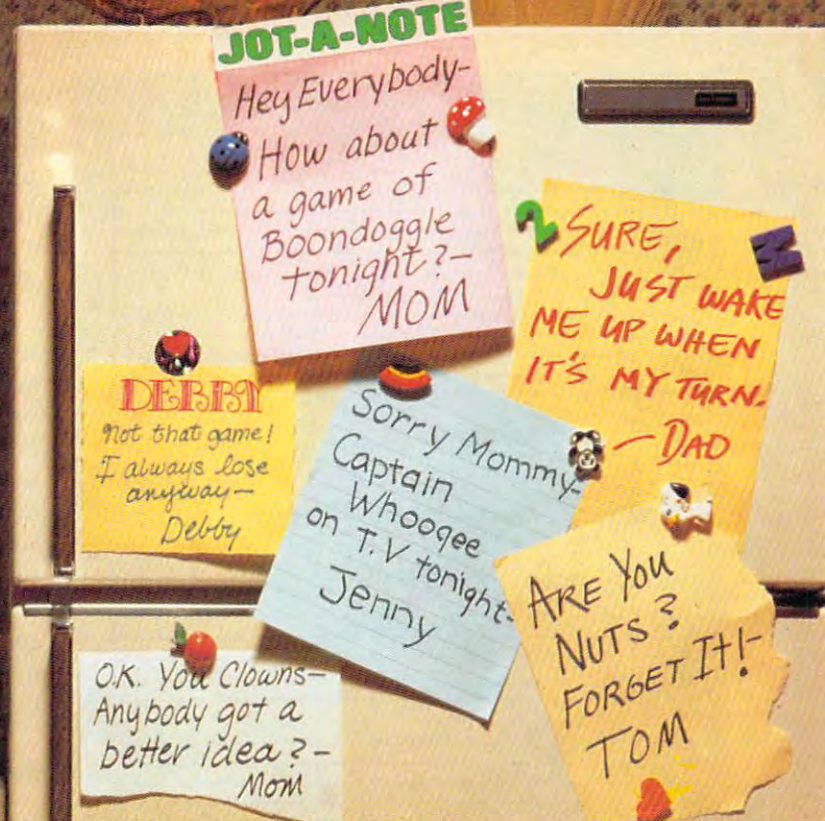 JOT-A-NOTE
Hey Everybody-
How about
a game of
Boondoggle
tonight?-
MOM
SURE,
JUST WAKE
ME UP WHEN
IT'S MY TURN.
- DAD
DEBBY
Not that game!
I always lose
anyway-
Debby
Sorry Mommy-
Captain
Whooqee
on T.V tonight-
Jenny
ARE YOU
NUTS?
FORGET IT!-
TOM
O.K. You Clowns-
Anybody got a
better idea?-
Mom